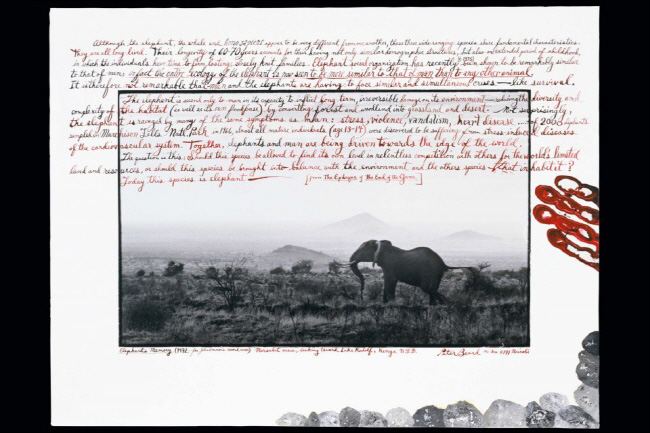 Although the elephant, the whale and homo sapiens appear to be very different from one another, these three wide-ranging species share fundamental characteristics.
They are all long lived. Their longevity of 60-70 years accounts for their having not only similar demographic structures, but also an extended period of childhood,
in which the individuals have time to form lasting, closely knit families. Elephant social organization has recently been shown to be remarkably similar
to that of man; in fact the entire ecology of the elephant is now seen to be more similar to that of man than to any other animal.
It is therefore not remarkable that man and the elephants are having to face similar and simultaneous crises — like survival.
The elephant is second only to man in its capacity to inflict long term, irreversible changes in its environment — changing the diversity and
complexity of the habitat (as well as its own foodspots) by converting forest and woodland into grassland and desert. Not surprisingly,
the elephant is ravaged by many of the same symptoms as man: stress, violence, vandalism, heart disease ... of 2000 elephants
sampled in Murchison Falls Natl. Park in 1966, almost all mature individuals (age 13-14) were discovered to be suffering from stress-induced diseases
of the cardiovascular system. Together, elephants and man are being driven towards the edge of the world.
The question is this: Should this species be allowed to find its own level in relentless competition with others for the world's limited
land and resources, or should this species be brought into balance with the environment and the others species that inhabit it?
Today this species is elephant. [from The Epilogue of The End of the Game]
Elephant Memory (1972 Marsabit looking toward Lake Rudolf, Kenya N.F.D. Peter Beard